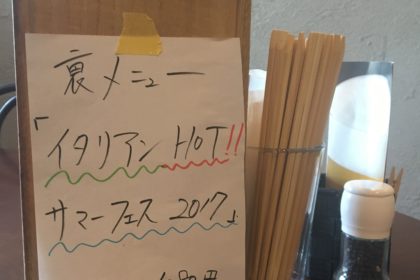 裏メニュー
「イタリアン HOT!!
サマーフェス 2017」